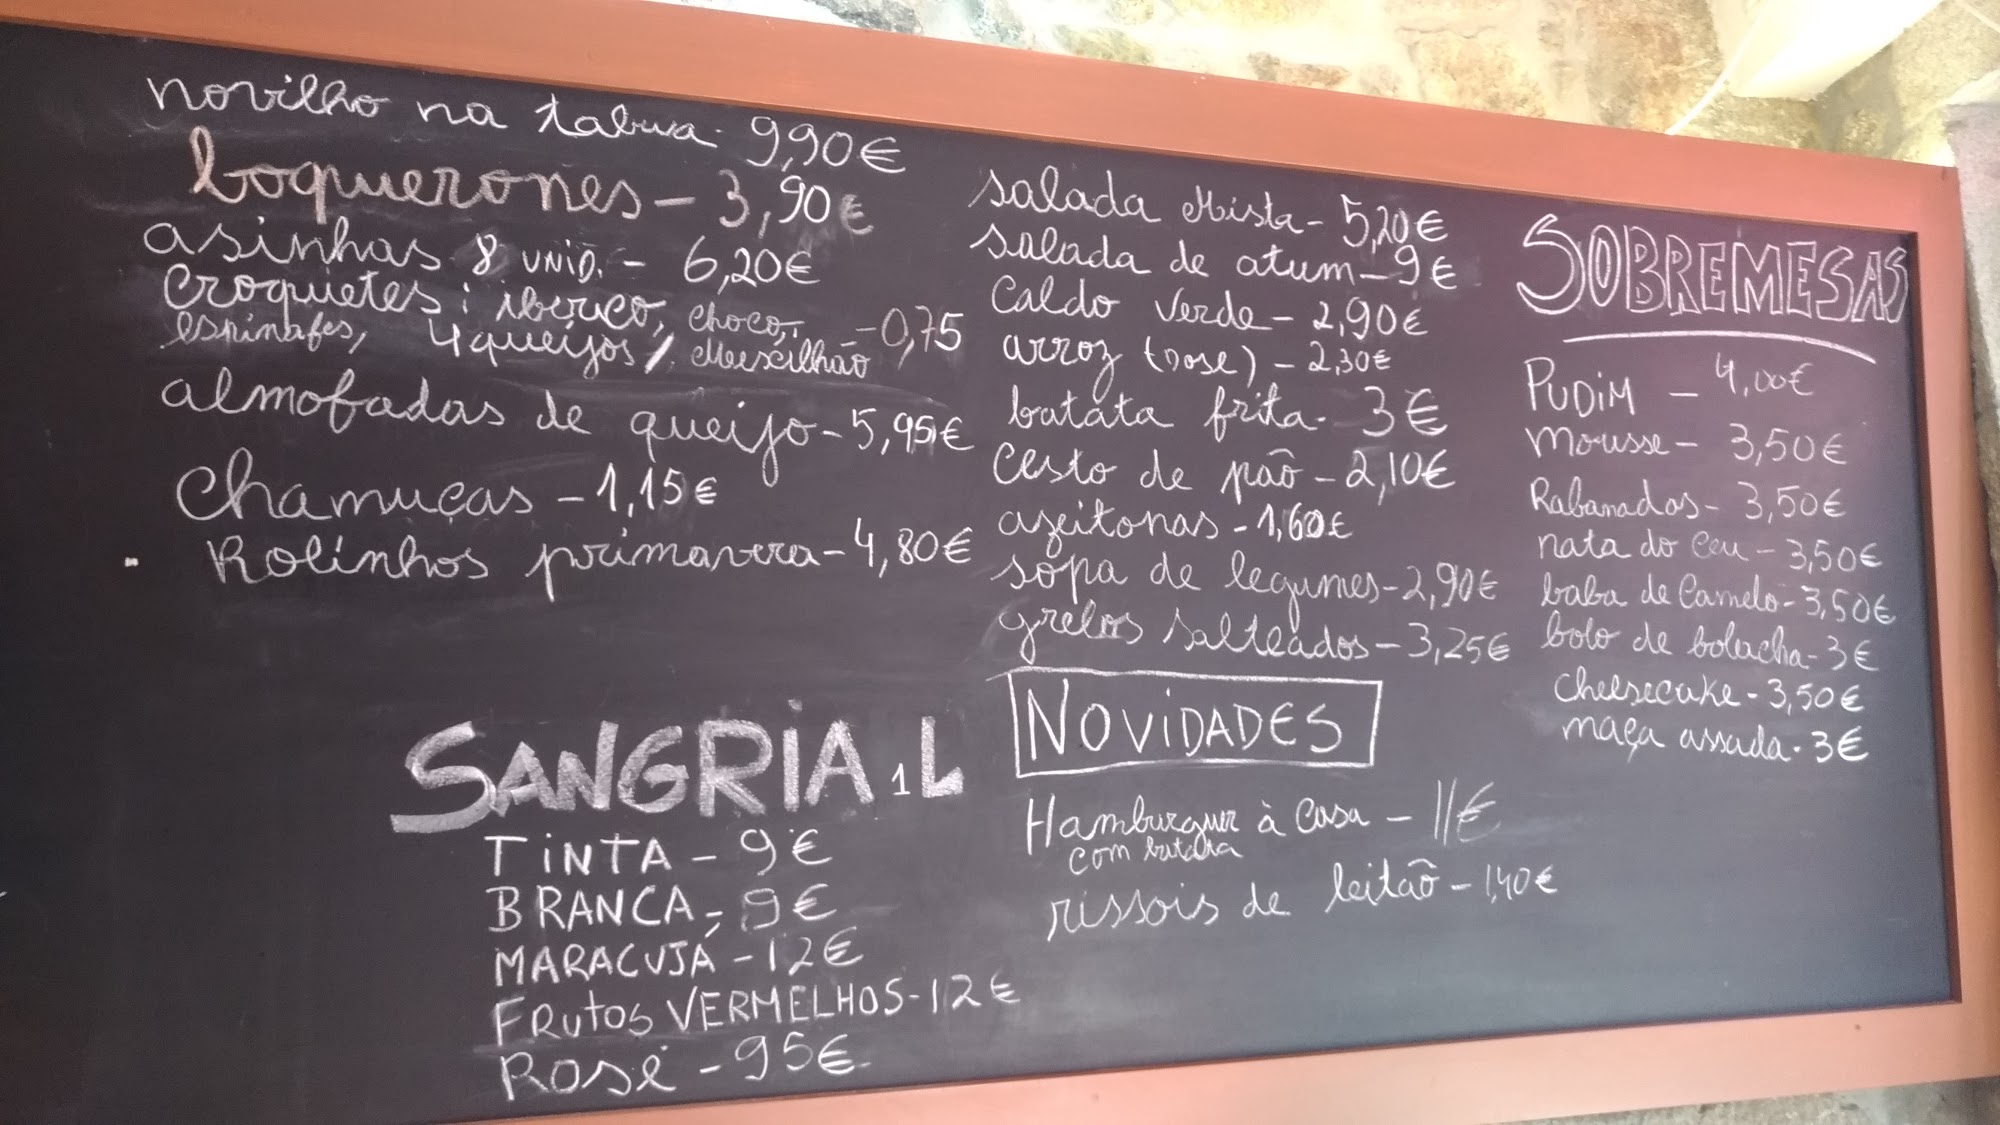 novilho na tabua - 9,90€
boquerones - 3,90€
asinhas 8 UNID. - 6,20€
croquetes: iberico, choco,
espinafes, 4 queijos, Mexilhão - 0,75
almofadas de queijo - 5,95€
chamuças - 1,15€
Rolinhos primavera - 4,80€
SANGRIA 1L
TINTA - 9€
BRANCA - 9€
MARACUJÁ - 12€
FRutos VERMELHOS - 12€
Rosé - 95€
salada Mista - 5,20€
salada de atum - 9€
Caldo Verde - 2,90€
arroz (Dose) - 2,30€
batata frita - 3€
Cesto de pão - 2,10€
azeitonas - 1,60€
sopa de legumes - 2,90€
grelos salteados - 3,25€
NOVIDADES
Hamburguer à Casa - 11€
com batata
rissois de leitão - 1,40€
SOBREMESAS
PUDIM - 4,00€
Mousse - 3,50€
Rabanadas - 3,50€
nata do Ceu - 3,50€
baba de Camelo - 3,50€
bolo de bolacha - 3€
Cheesecake - 3,50€
maça assada - 3€